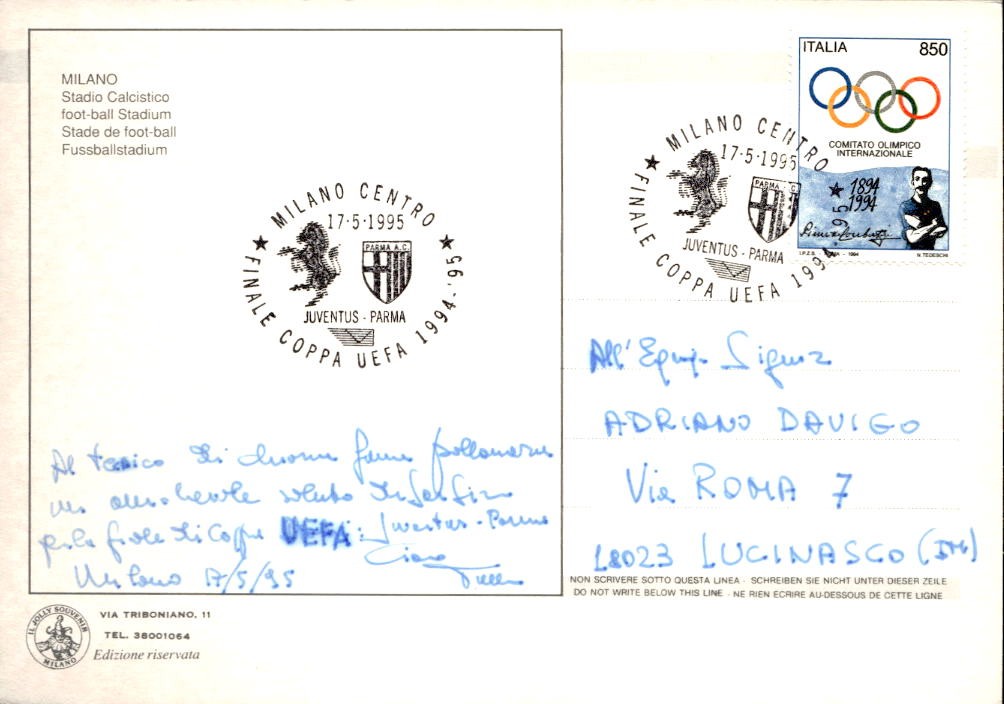 MILANO
Stadio Calcistico
foot-ball Stadium
Stade de foot-ball
Fussballstadium
MILANO CENTRO
17·5·1995
PARMA A.C.
JUVENTUS - PARMA
★ FINALE COPPA UEFA 1994-'95 ★
Al di fama
un saluto
Coppa UEFA: Juventus - Parma
Milano 17/5/95 Ciao
ITALIA 850
COMITATO OLIMPICO
INTERNAZIONALE
1894
1994
I.P.Z.S. - ROMA - 1994 N. TEDESCHI
MILANO CENTRO
17·5·1995
PARMA A.C.
JUVENTUS - PARMA
★ FINALE COPPA UEFA 1994-'95 ★
All' Signor
ADRIANO DAVIGO
Via ROMA 7
18023 LUCINASCO (IM)
NON SCRIVERE SOTTO QUESTA LINEA - SCHREIBEN SIE NICHT UNTER DIESER ZEILE
DO NOT WRITE BELOW THIS LINE - NE RIEN ECRIRE AU-DESSOUS DE CETTE LIGNE
IL JOLLY SOUVENIR
MILANO
VIA TRIBONIANO, 11
TEL. 38001064
Edizione riservata